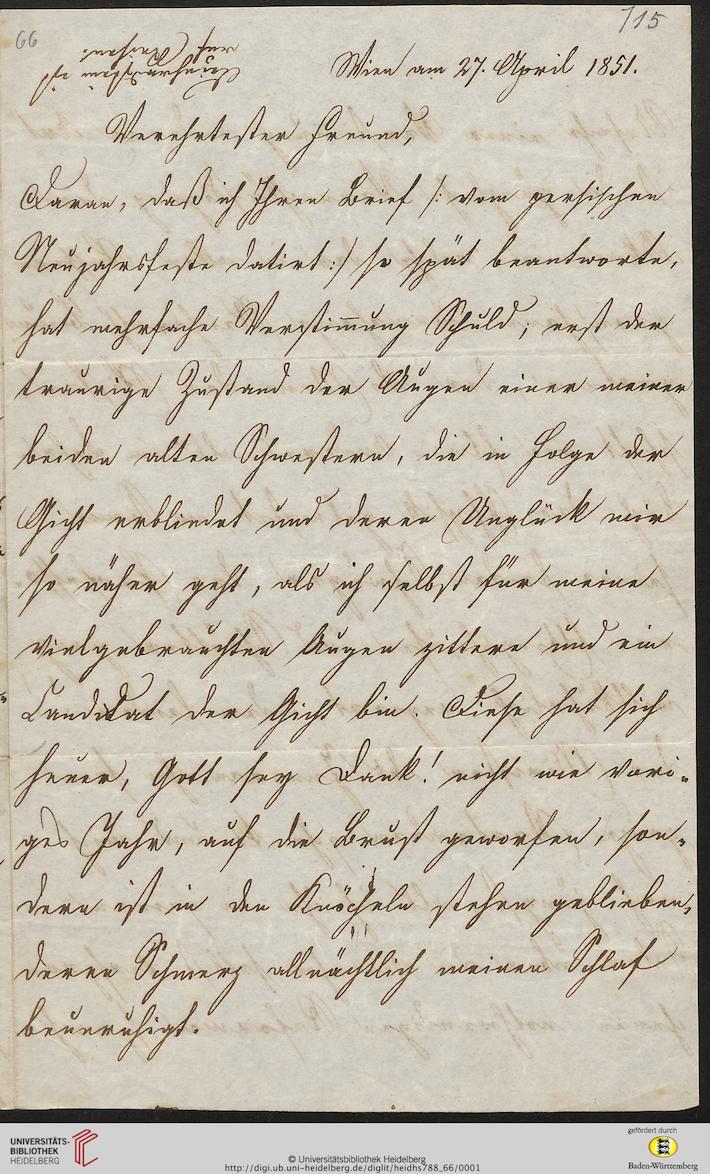 66
115
Wien am 27. April 1851.
Verehrtester Freund,
Daran, daß ich Ihren Brief /: vom persischen
Neujahrsfeste datirt :/ so spät beantworte,
hat mehrfache Verstimmung Schuld; erst der
traurige Zustand der Augen einer meiner
beiden alten Schwestern, die in Folge der
Gicht erblindet und deren Unglück mir
so näher geht, als ich selbst für meine
vielgebrauchten Augen zittere und ein
Candidat der Gicht bin. Diese hat sich
heuer, Gott sey Dank! nicht wie vori-
ges Jahr, auf die Brust geworfen, son-
dern ist in den Knöcheln stehen geblieben,
deren Schmerz allnächtlich meinen Schlaf
beunruhigt.
UNIVERSITÄTS-
BIBLIOTHEK
HEIDELBERG
© Universitätsbibliothek Heidelberg
http://digi.ub.uni-heidelberg.de/diglit/heidhs788_66/0001
gefördert durch
Baden-Württemberg